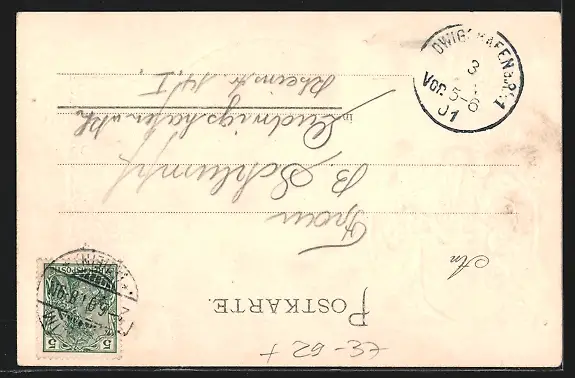 + 29-27
POSTKARTE.
An
Frau
B. Schlumpf
in Ludwigshafen a/Rh.
Rheinstr 14, I
5 5
LUDWIGSHAFEN a. R. 1
3
Vor. 5-6
01